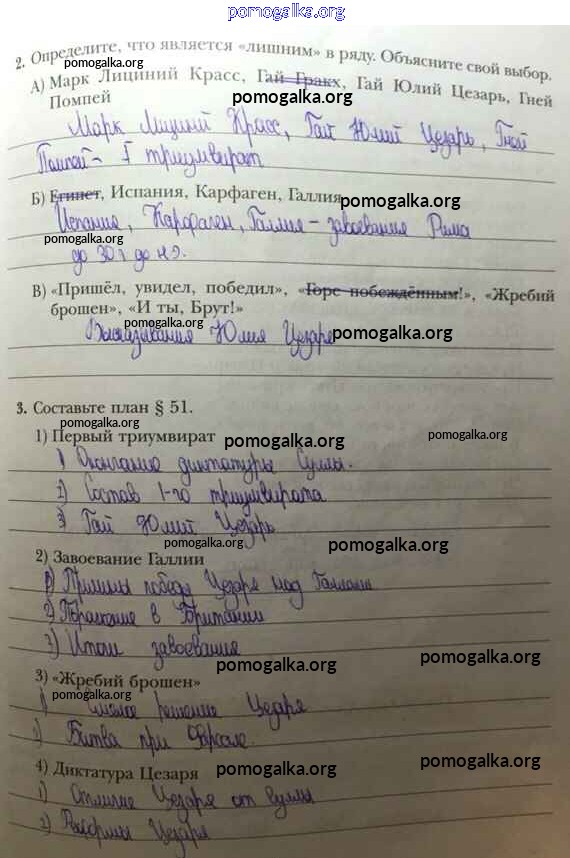 pomogalka.org
2. Определите, что является «лишним» в ряду. Объясните свой выбор.
pomogalka.org
А) Марк Лициний Красс, Гай Гракх, Гай Юлий Цезарь, Гней
Помпей
pomogalka.org
Марк Лициний Красс, Гай Юлий Цезарь, Гней
Помпей – I триумвират
pomogalka.org
Б) Египет, Испания, Карфаген, Галлия
pomogalka.org
Испания, Карфаген, Галлия – завоевания Рима
pomogalka.org
до 30 г до н.э.
В) «Пришёл, увидел, победил», «Горе побеждённым!», «Жребий
брошен», «И ты, Брут!»
pomogalka.org
pomogalka.org
Высказывания Юлия Цезаря
3. Составьте план § 51.
pomogalka.org
1) Первый триумвират
pomogalka.org
pomogalka.org
1) Окончание диктатуры Суллы.
2) Состав 1-го триумвирата
3) Гай Юлий Цезарь
pomogalka.org
pomogalka.org
2) Завоевание Галлии
1) Причины победы Цезаря над Галлами
2) Поражение в Британии
3) Итоги завоевания
pomogalka.org
pomogalka.org
3) «Жребий брошен»
pomogalka.org
1) Смелое решение Цезаря
2) Битва при Фарсале.
pomogalka.org
pomogalka.org
4) Диктатура Цезаря
1) Отличие Цезаря от Суллы
2) Реформы Цезаря
pomogalka.org